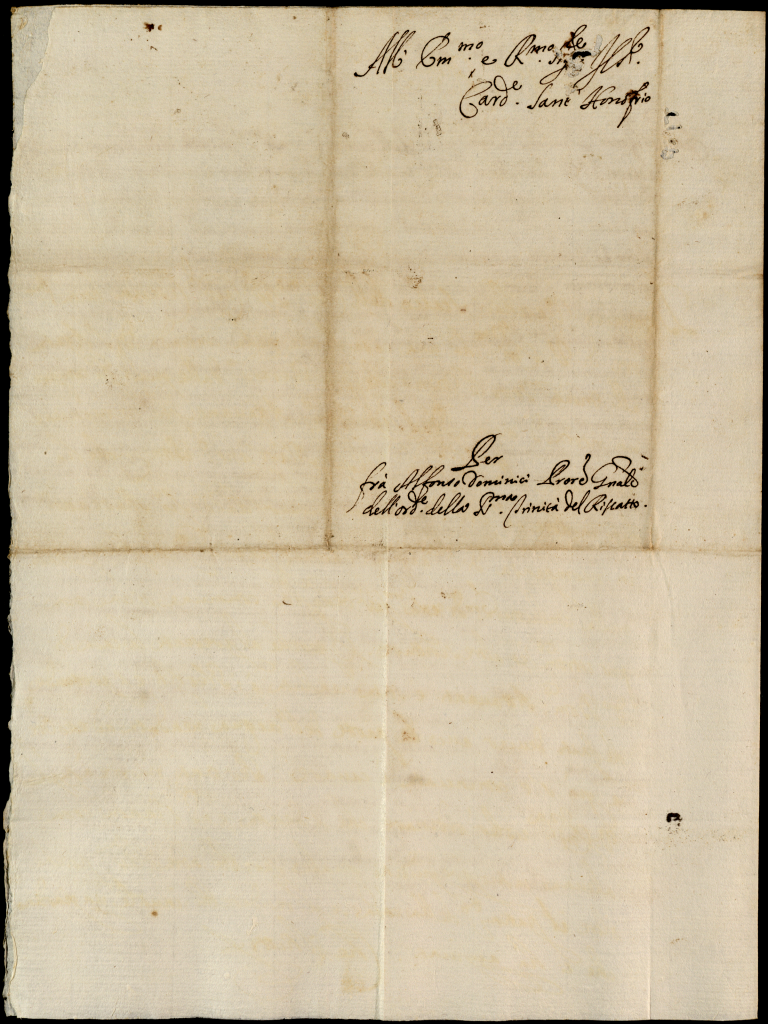 All' Em.mo e R.mo Sig.re
Card.e Sant' Honofrio
Per
frà Alfonso Dominici Pror.e Gnãle
dell'ord.e della S.ma Trinità del Riscatto.